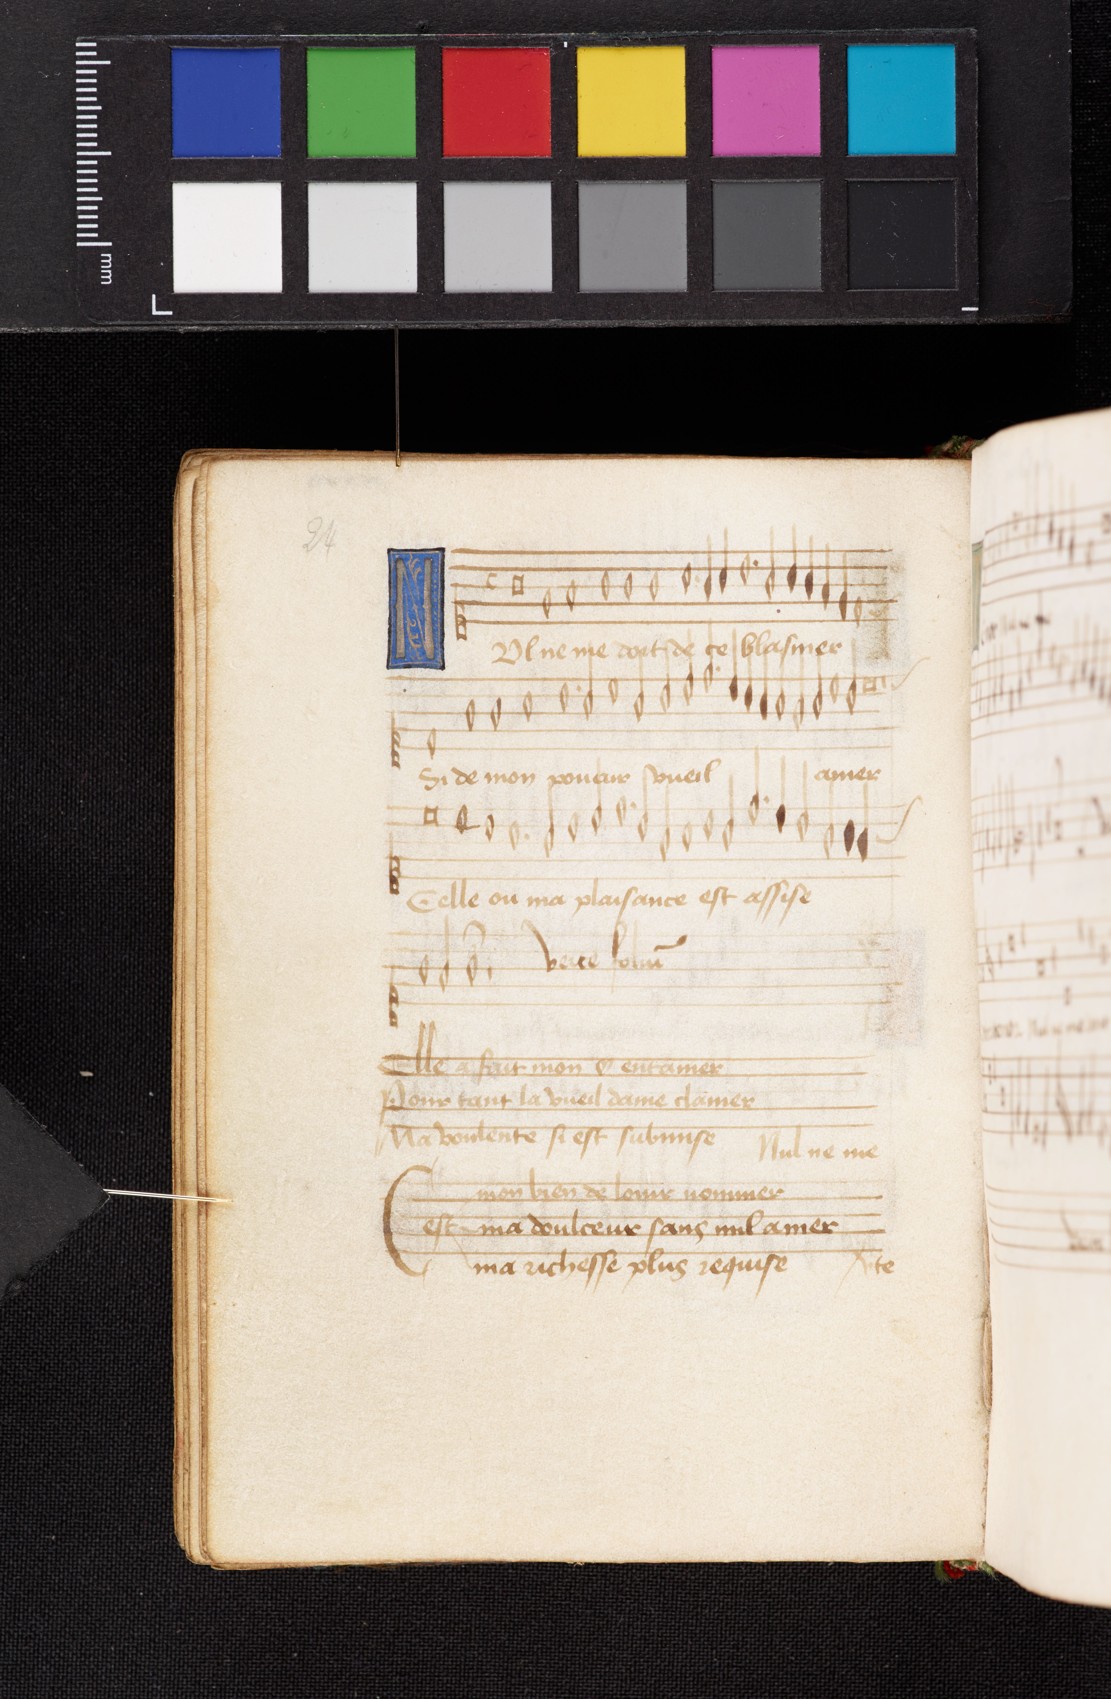 mm
24
NUl ne me doit de ce blasmer
Si de mon pouoir vueil amer
Celle ou ma plaisance est assise
verte
Elle a fait mon entamer
Pour tant la vueil dame clamer
Ma voulente si est submise Nul ne me
mon bien de louir nommer
Cest ma doulceur sans nul amer
ma richesse plus requise